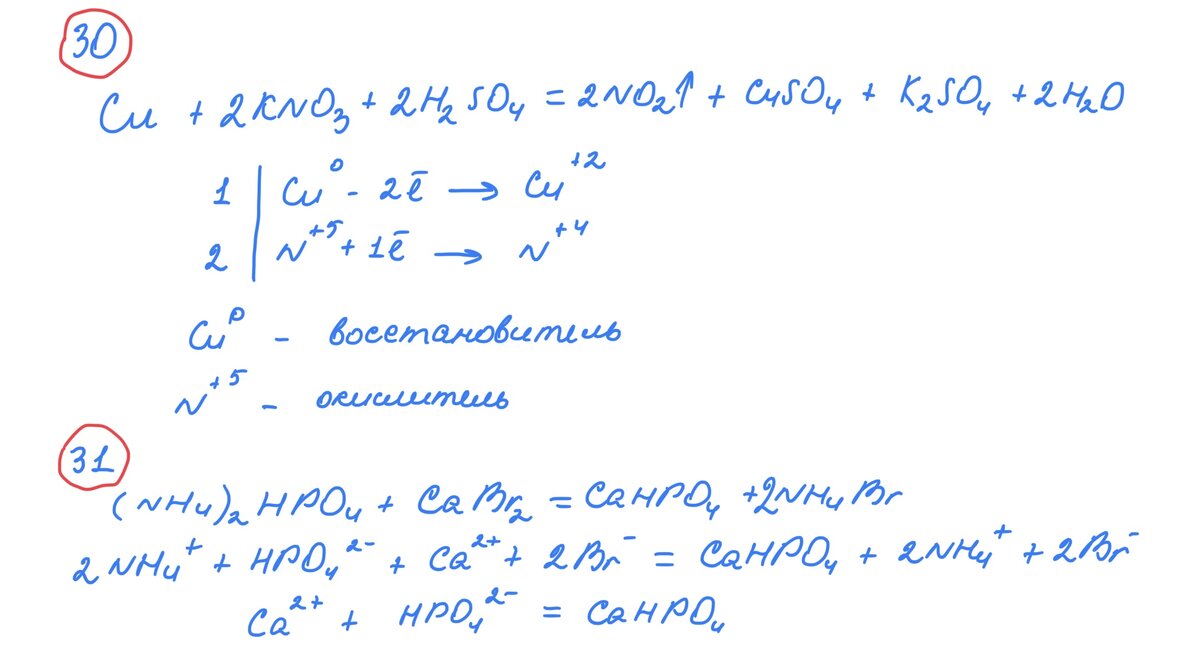 30
Cu + 2KNO₃ + 2H₂SO₄ = 2NO₂↑ + CuSO₄ + K₂SO₄ + 2H₂O
1 | Cu⁰ - 2ē → Cu⁺²
2 | N⁺⁵ + 1ē → N⁺⁴
Cu⁰ - восстановитель
N⁺⁵ - окислитель
31
(NH₄)₂HPO₄ + CaBr₂ = CaHPO₄ + 2NH₄Br
2NH₄⁺ + HPO₄²⁻ + Ca²⁺ + 2Br⁻ = CaHPO₄ + 2NH₄⁺ + 2Br⁻
Ca²⁺ + HPO₄²⁻ = CaHPO₄